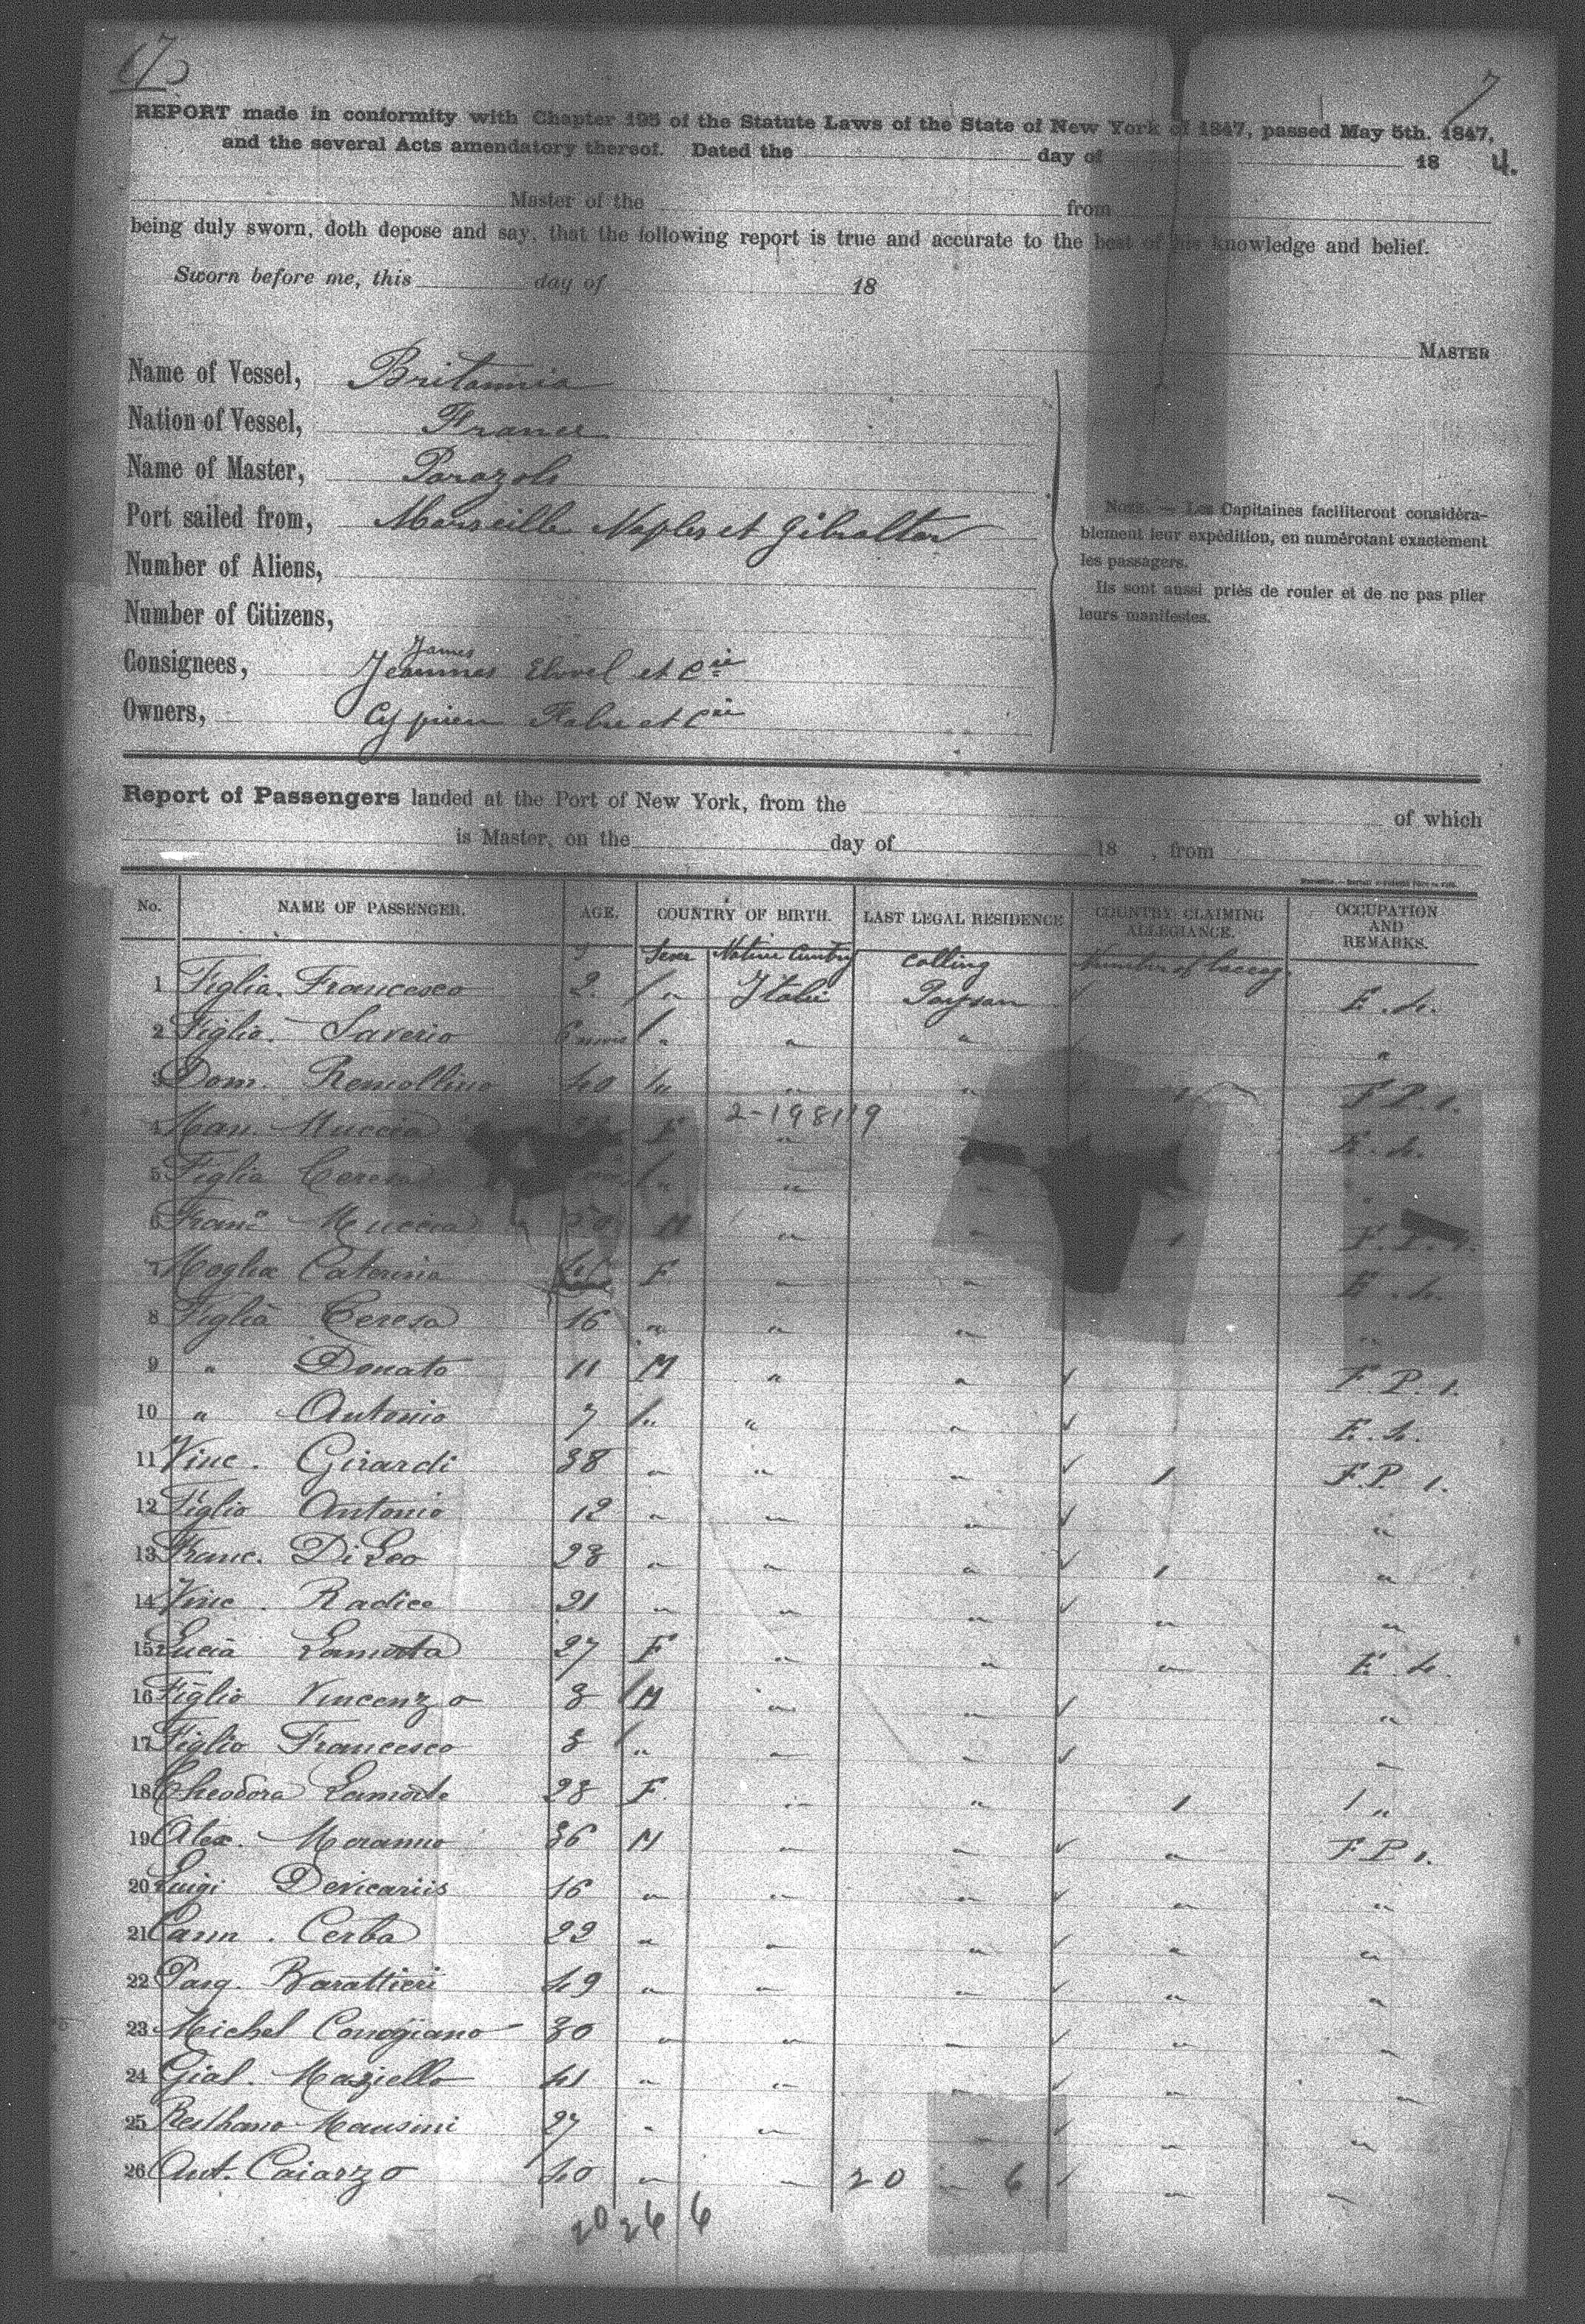 173
7
REPORT made in conformity with Chapter 195 of the Statute Laws of the State of New York of 1847, passed May 5th. 1847,
and the several Acts amendatory thereof. Dated the day of 18 4.
Master of the from
being duly sworn, doth depose and say, that the following report is true and accurate to the best of his knowledge and belief.
Sworn before me, this day of 18
MASTER
Name of Vessel, Britannia
Nation of Vessel, France
Name of Master,
Port sailed from, Marseille Naples et Gibraltar
Number of Aliens,
Number of Citizens,
Consignees, James et Cie
Owners, Cyprien Fabre et Cie
NOTE. — Les Capitaines faciliteront considéra-
blement leur expédition, en numérotant exactement
les passagers.
Ils sont aussi priés de rouler et de ne pas plier
leurs manifestes.
Report of Passengers landed at the Port of New York, from the of which
is Master, on the day of 18 , from
No. NAME OF PASSENGER. AGE. COUNTRY OF BIRTH. LAST LEGAL RESIDENCE COUNTRY CLAIMING ALLEGIANCE. OCCUPATION AND REMARKS.
Sexe Native Cuntry Calling Number of
1 Figlia. Francesco 2. " Italie Paysan E. 4.
2 Figlio. Saverio " " " "
3 Dom. Remollino 40 " " " 1 F. P. 1.
2-198119
4 Muccia F " E. 4.
5 Figlia Ceresa " " "
6 Franc Muccia M " " 1 F. P. 1.
7 Moglia Caterina F " " E. 4.
8 Figlia Ceresa 16 " " " "
9 " Donato 11 M " " F. P. 1.
10 " Antonio 7 " " " E. 4.
11 Vinc. Girardi 38 " " " 1 F. P. 1.
12 Figlio Antonio 12 " " " "
13 Franc. Di Leo 28 " " " 1 "
14 Vinc. Radice 21 " " " " "
15 Lucia Lamorta 27 F " " " E. 4.
16 Figlio Vincenzo 8 M " " "
17 Figlio Francesco 3 " " " "
18 Theodora Lamorte 28 F. " " 1 1 "
19 Alex. Meranno 36 M " " " F P 1.
20 Luigi Devicariis 16 " " " " "
21 Carm. Cerba 22 " " " " "
22 Pasq. Barattieri 49 " " " " "
23 Michel 30 " " " " "
24 Maziello 41 " " " " "
25 27 " " " " "
26 Ant. Caiazzo 40 " " 20 " 6 " "
20 26 6